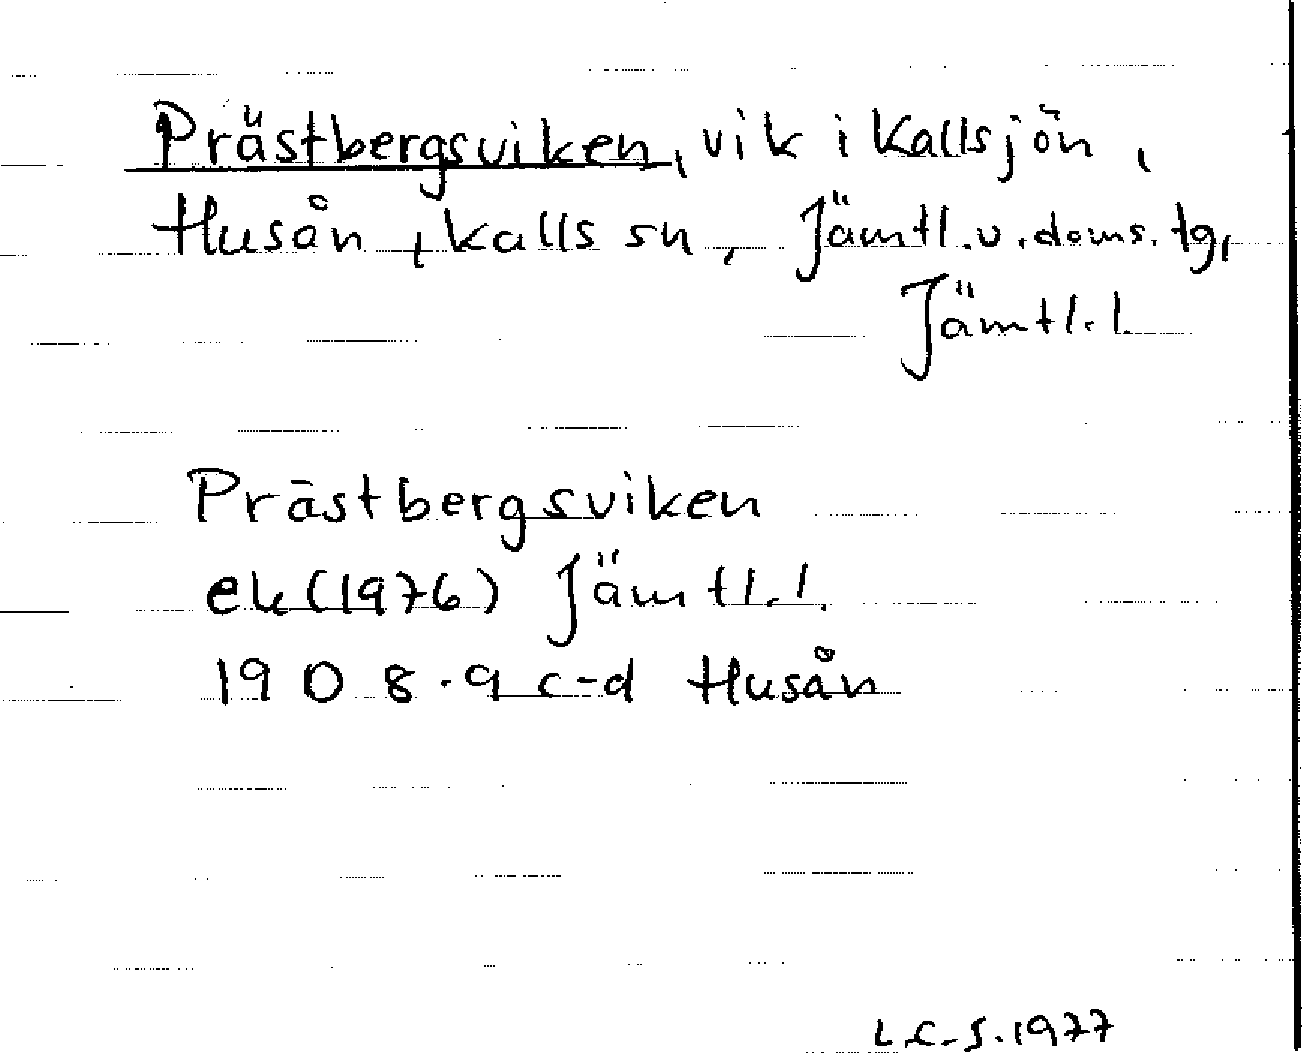 Prästbergsviken, vik i Kallsjön,
Husån, Kalls sn, Jämtl.v.doms.tg,
Jämtl.l
Prästbergsviken
ek(1976) Jämtl.l.
19 D 8-9 c-d Husån
L.C-S. 1977